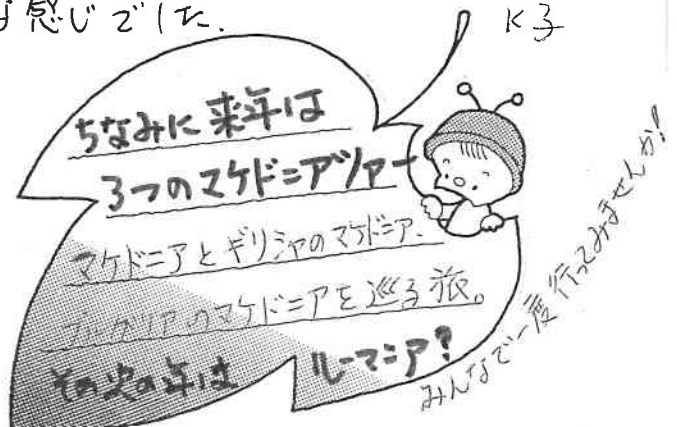 な感じでした.
K子
ちなみに来年は
3つのマケドニアツアー
マケドニアとギリシャのマケドニア、
ブルガリアのマケドニアを巡る旅。
その次の年は ルーマニア?
みんなで一度行ってみませんか!